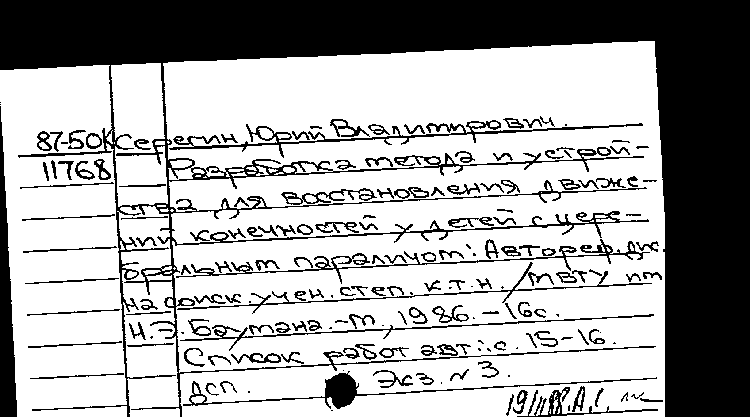 87-50К Серегин, Юрий Владимирович.
11768 Разработка метода и устрой-
ства для восстановления движе-
ний конечностей у детей с цере-
бральным параличом: Автореф. дис.
на соиск. учен. степ. к.т.н. / МВТУ им
Н.Э. Баумана. -М., 1986. -16с.
Список работ авт.: с. 15-16.
ДСП. Экз. № 3.